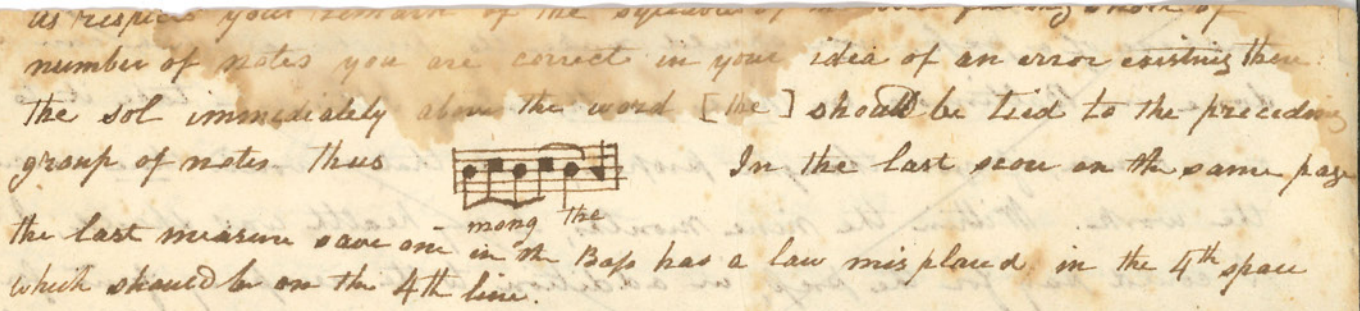 as respects your remark of the
number of notes you are correct in your idea of an error existing there
the sol immediately above the word [the] should be tied to the preceding
group of notes thus
mong the
In the last score on the same page
the last measure save one in the Bass has a law misplaced in the 4th space
which should be on the 4th line.